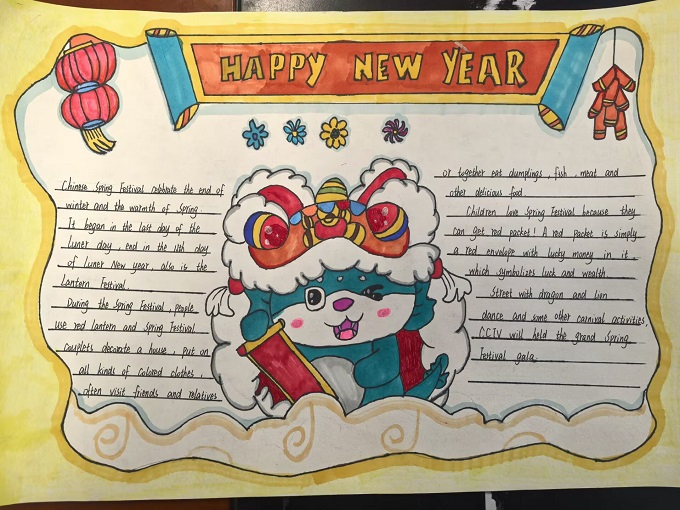 HAPPY NEW YEAR
Chinese Spring Festival celebrate the end of
winter and the warmth of Spring.
It began in the last day of the
luner day, end in the 15th day
of luner New year, also is the
Lantern Festival.
During the Spring Festival, people
use red lantern and Spring Festival
couplets decorate a house, put on
all kinds of colored clothes,
often visit friends and relatives
or together eat dumplings, fish, meat and
other delicious food.
Children love Spring Festival because they
can get red packet! A red packet is simply
a red envelope with lucky money in it,
which symbolizes luck and wealth.
Street with dragon and lion
dance and some other carnival activities,
CCTV will held the grand Spring
Festival gala.